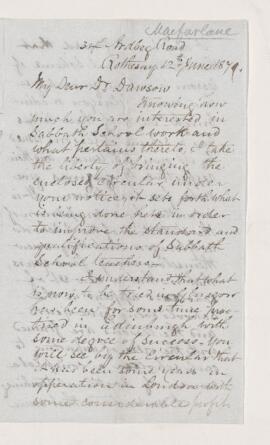 Macfarlane
34 Ardbeg Road
Rothesay 12th June 1879.
My Dear Dr Dawson
Knowing how
much you are interested in
Sabbath School work and
what pertains thereto, I take
the liberty of bringing the
enclosed circular under
your notice. It sets forth what
is being done here in order
to improve the standard and
qualifications of Sabbath
School teachers.
I understand that what
is now to be tried in Glasgow
has been for some time
tried in Edinburgh with
some degree of success. You
will see by the circular that
it had been some years in
operation in London with
some considerable profit